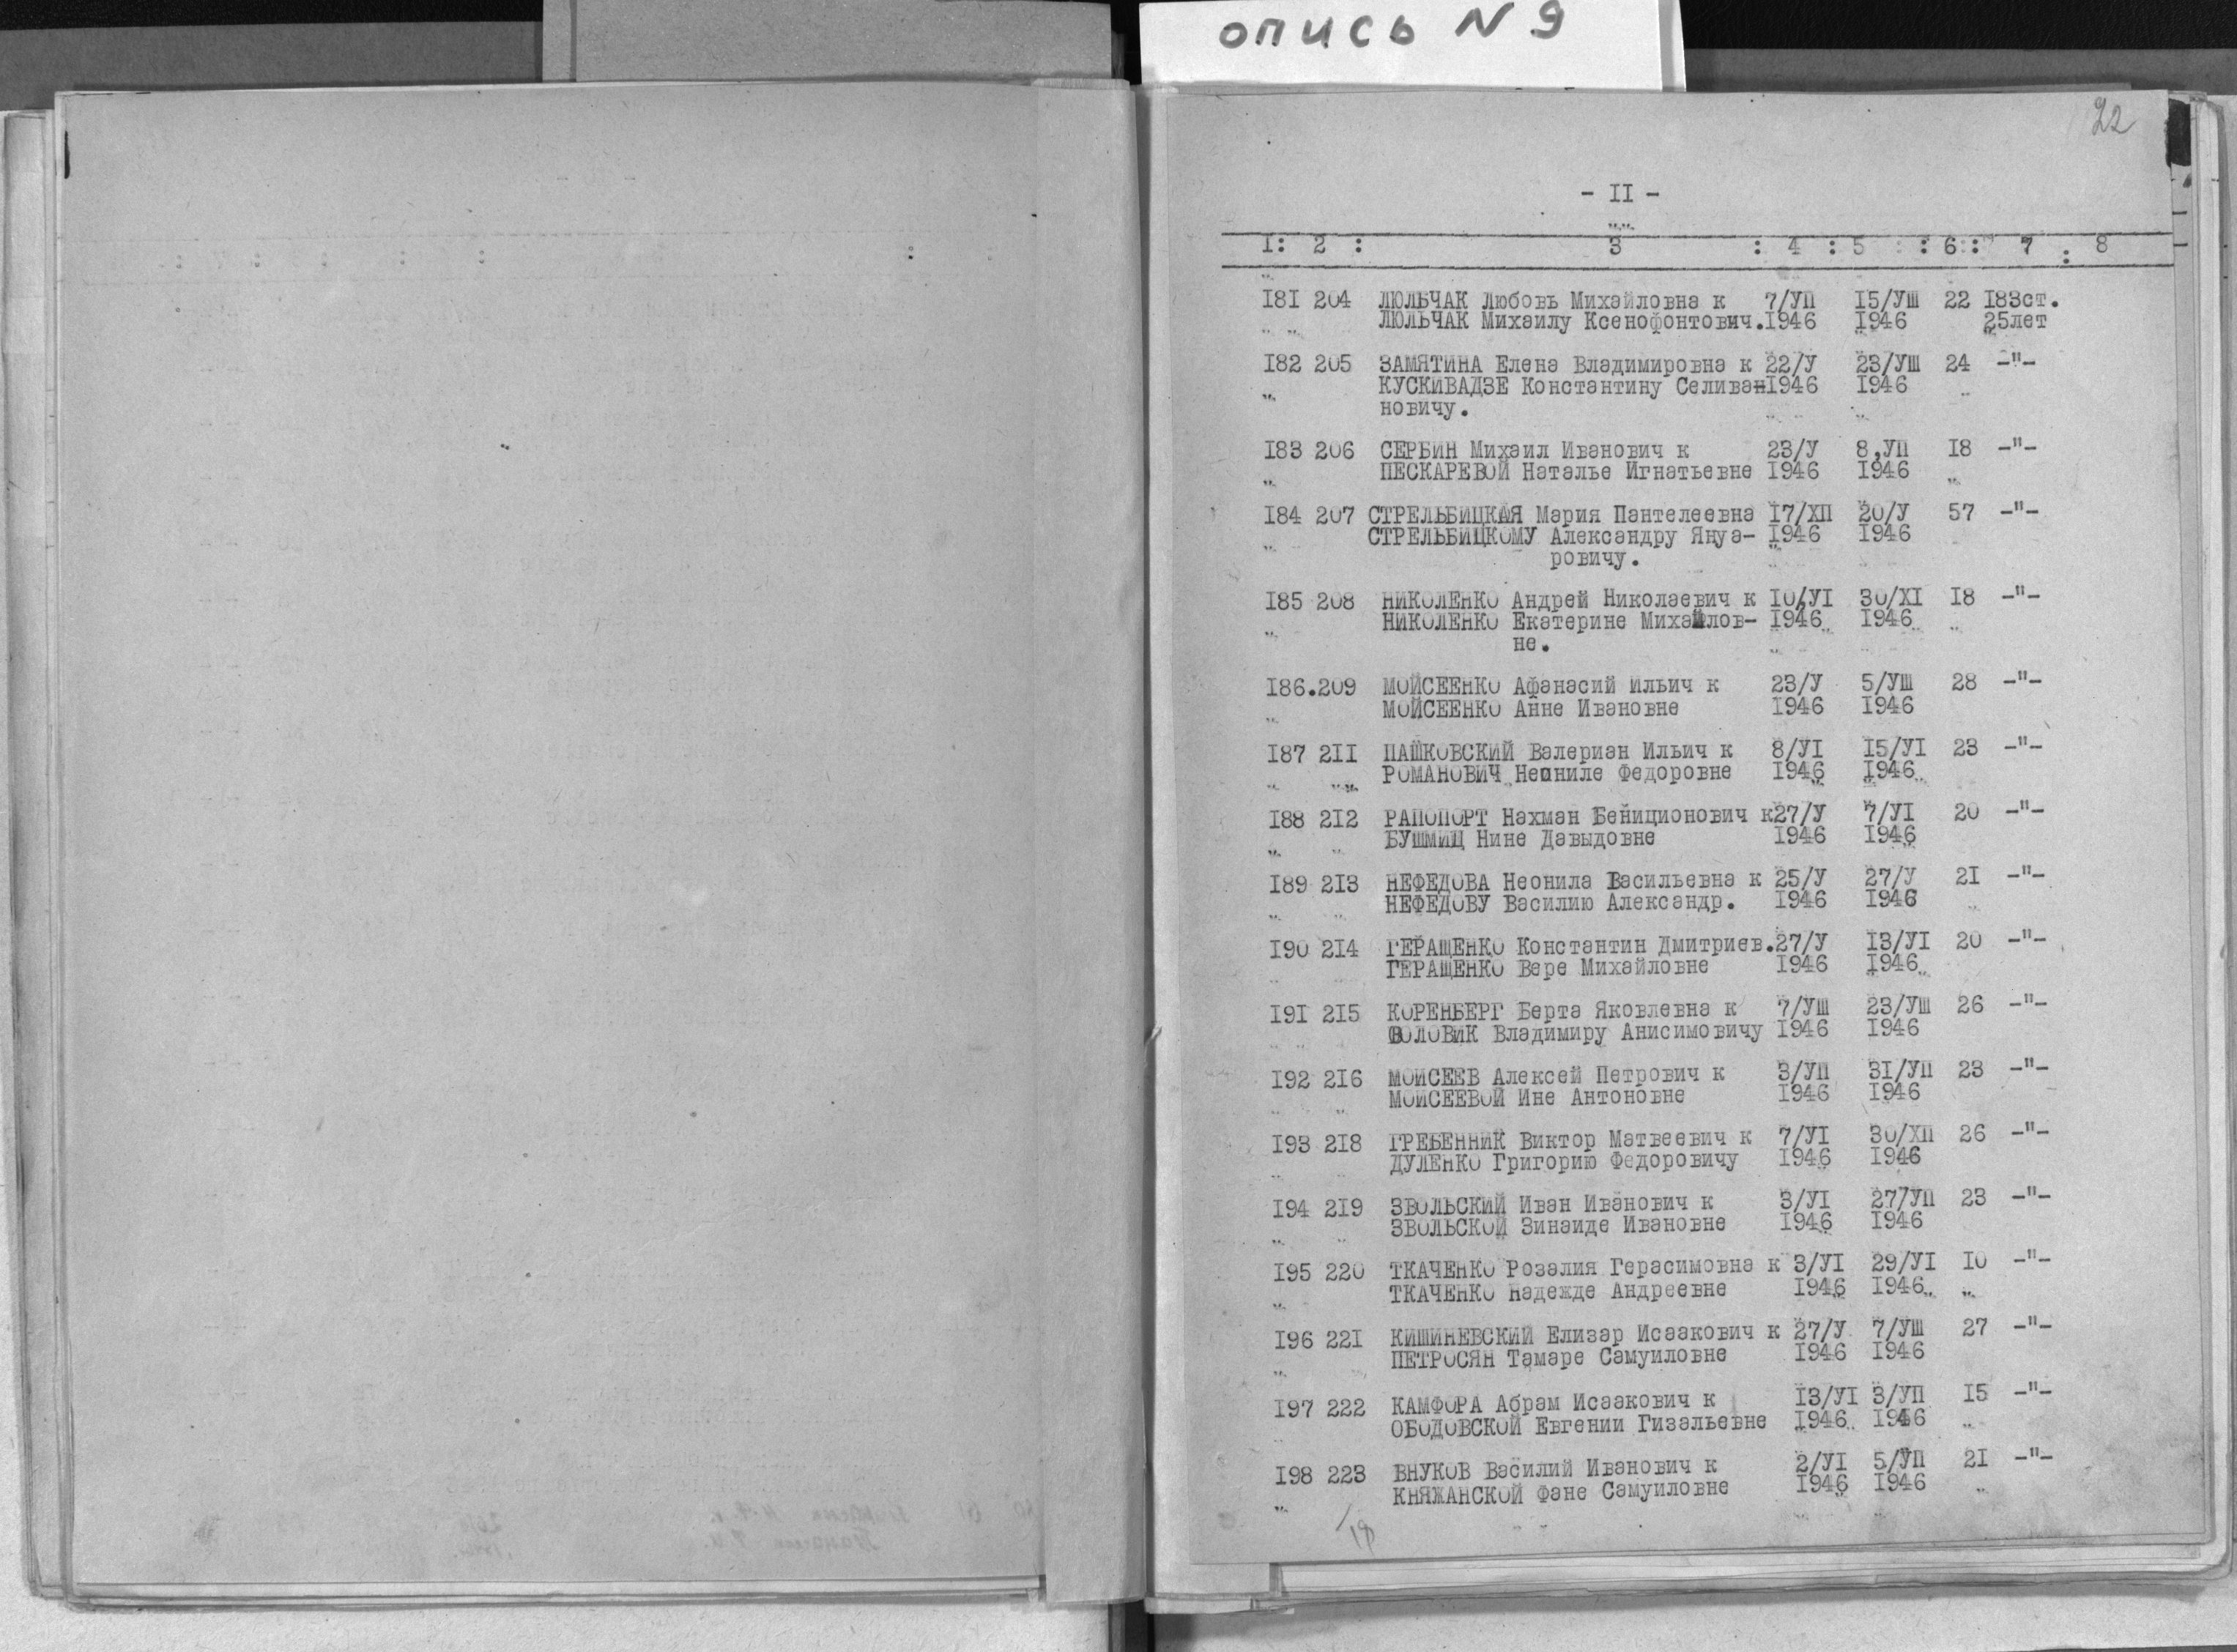 опись N 9
22
- II -
I: 2 : 3 : 4 : 5 : 6 : 7 : 8
I8I 204 ЛЮЛЬЧАК Любовь Михайловна к 7/УП I5/УШ 22 I83ст.
" " ЛЮЛЬЧАК Михаилу Ксенофонтович. I946 I946 25лет
I82 205 ЗАМЯТИНА Елена Владимировна к 22/У 23/УШ 24 -"-
" КУСКИВАДЗЕ Константину Селиван I946 I946
новичу.
I83 206 СЕРБИН Михаил Иванович к 23/У 8,УП I8 -"-
" ПЕСКАРЕВОЙ Наталье Игнатьевне I946 I946 "
I84 207 СТРЕЛЬБИЦКАЯ Мария Пантелеевна I7/ХП 20/У 57 -"-
" СТРЕЛЬБИЦКОМУ Александру Януа- I946 I946
ровичу.
I85 208 НИКОЛЕНКО Андрей Николаевич к I0/УI 30/ХI I8 -"-
" НИКОЛЕНКО Екатерине Михайлов- I946 I946 "
не.
I86.209 МОЙСЕЕНКО Афанасий Ильич к 23/У 5/УШ 28 -"-
" МОЙСЕЕНКО Анне Ивановне I946 I946
I87 2II ПАШКОВСКИЙ Валериан Ильич к 8/УI I5/УI 23 -"-
" " РОМАНОВИЧ Неониле Федоровне I946 I946
I88 2I2 РАПОПОРТ Нахман Бениционович к 27/У 7/УI 20 -"-
" " БУШМИЦ Нине Давыдовне I946 I946
I89 2I3 НЕФЕДОВА Неонила Васильевна к 25/У 27/У 2I -"-
" " НЕФЕДОВУ Василию Александр. I946 I946
I90 2I4 ГЕРАЩЕНКО Константин Дмитриев. 27/У I3/УI 20 -"-
" " ГЕРАЩЕНКО Вере Михайловне I946 I946
I9I 2I5 КОРЕНБЕРГ Берта Яковлевна к 7/УШ 23/УШ 26 -"-
" " ВОЛОВИК Владимиру Анисимовичу I946 I946
I92 2I6 МОИСЕЕВ Алексей Петрович к 3/УП 3I/УП 23 -"-
" " МОИСЕЕВОЙ Ине Антоновне I946 I946
I93 2I8 ГРЕБЕННИК Виктор Матвеевич к 7/УI 30/ХП 26 -"-
" " ДУЛЕНКО Григорию Федоровичу I946 I946
I94 2I9 ЗВОЛЬСКИЙ Иван Иванович к 3/УI 27/УП 23 -"-
" " ЗВОЛЬСКОЙ Зинаиде Ивановне I946 I946
I95 220 ТКАЧЕНКО Розалия Герасимовна к 3/УI 29/УI I0 -"-
" ТКАЧЕНКО Надежде Андреевне I946 I946 "
I96 22I КИШИНЕВСКИЙ Елизар Исаакович к 27/У 7/УШ 27 -"-
" ПЕТРОСЯН Тамаре Самуиловне I946 I946
I97 222 КАМФОРА Абрам Исаакович к I3/УI 3/УП I5 -"-
ОБОДОВСКОЙ Евгении Гизальевне I946 I946 "
I98 223 ВНУКОВ Василий Иванович к 2/УI 5/УП 2I -"-
" КНЯЖАНСКОЙ Фане Самуиловне I946 I946 "
/18